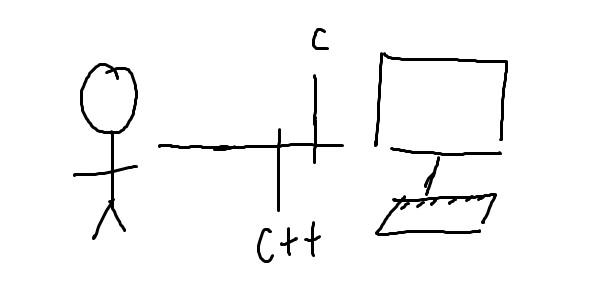 C
C++